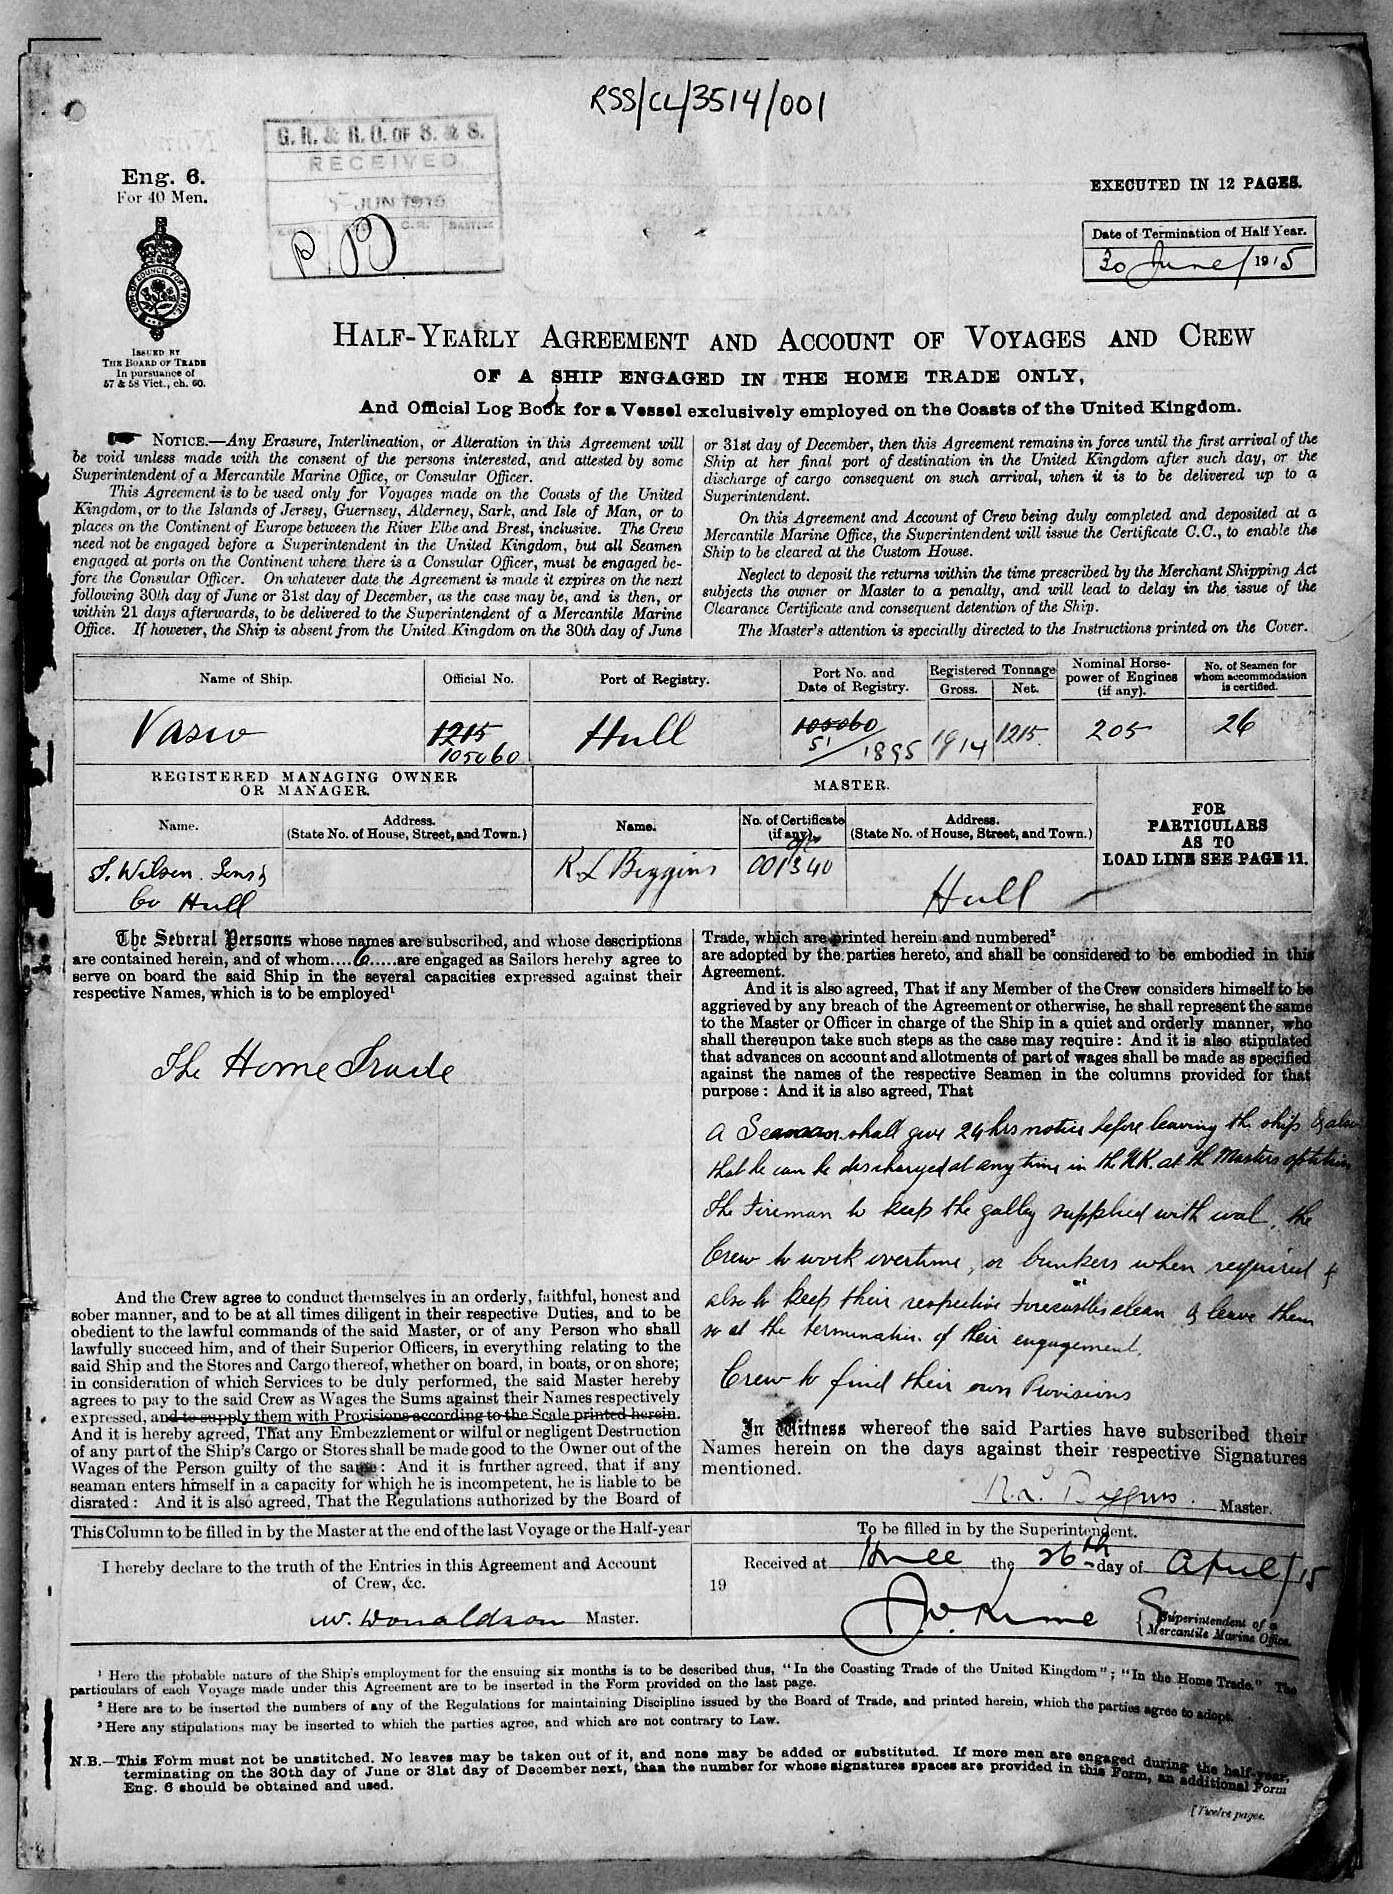 RSS/CL/3514/001
G. R. & R. O. OF S. & S.
RECEIVED
JUN 1919
Eng. 6.
For 40 Men.
EXECUTED IN 12 PAGES.
Date of Termination of Half Year.
30 June / 1915
ISSUED BY
THE BOARD OF TRADE
In pursuance of
57 & 58 Vict., ch. 60.
HALF-YEARLY AGREEMENT AND ACCOUNT OF VOYAGES AND CREW
OF A SHIP ENGAGED IN THE HOME TRADE ONLY,
And Official Log Book for a Vessel exclusively employed on the Coasts of the United Kingdom.
NOTICE.—Any Erasure, Interlineation, or Alteration in this Agreement will
be void unless made with the consent of the persons interested, and attested by some
Superintendent of a Mercantile Marine Office, or Consular Officer.
This Agreement is to be used only for Voyages made on the Coasts of the United
Kingdom, or to the Islands of Jersey, Guernsey, Alderney, Sark, and Isle of Man, or to
places on the Continent of Europe between the River Elbe and Brest, inclusive. The Crew
need not be engaged before a Superintendent in the United Kingdom, but all Seamen
engaged at ports on the Continent where there is a Consular Officer, must be engaged be-
fore the Consular Officer. On whatever date the Agreement is made it expires on the next
following 30th day of June or 31st day of December, as the case may be, and is then, or
within 21 days afterwards, to be delivered to the Superintendent of a Mercantile Marine
Office. If however, the Ship is absent from the United Kingdom on the 30th day of June
or 31st day of December, then this Agreement remains in force until the first arrival of the
Ship at her final port of destination in the United Kingdom after such day, or the
discharge of cargo consequent on such arrival, when it is to be delivered up to a
Superintendent.
On this Agreement and Account of Crew being duly completed and deposited at a
Mercantile Marine Office, the Superintendent will issue the Certificate C.C., to enable the
Ship to be cleared at the Custom House.
Neglect to deposit the returns within the time prescribed by the Merchant Shipping Act
subjects the owner or Master to a penalty, and will lead to delay in the issue of the
Clearance Certificate and consequent detention of the Ship.
The Master's attention is specially directed to the Instructions printed on the Cover.
Name of Ship.
Official No.
Port of Registry.
Port No. and
Date of Registry.
Registered Tonnage
Gross.
Net.
Nominal Horse-
power of Engines
(if any).
No. of Seamen for
whom accommodation
is certified.
Vasco
1215
105060
Hull
105060
51/1895
1914
1215
205
26
REGISTERED MANAGING OWNER
OR MANAGER.
MASTER.
FOR
PARTICULARS
AS TO
LOAD LINE SEE PAGE 11.
Name.
Address.
(State No. of House, Street, and Town.)
Name.
No. of Certificate
(if any).
Address.
(State No. of House, Street, and Town.)
T. Wilson Sons &
Co Hull
R L Biggins
001340
Hull
The Several Persons whose names are subscribed, and whose descriptions
are contained herein, and of whom....6.....are engaged as Sailors hereby agree to
serve on board the said Ship in the several capacities expressed against their
respective Names, which is to be employed¹
The Home Trade
And the Crew agree to conduct themselves in an orderly, faithful, honest and
sober manner, and to be at all times diligent in their respective Duties, and to be
obedient to the lawful commands of the said Master, or of any Person who shall
lawfully succeed him, and of their Superior Officers, in everything relating to the
said Ship and the Stores and Cargo thereof, whether on board, in boats, or on shore;
in consideration of which Services to be duly performed, the said Master hereby
agrees to pay to the said Crew as Wages the Sums against their Names respectively
expressed, and to supply them with Provisions according to the Scale printed herein.
And it is hereby agreed, That any Embezzlement or wilful or negligent Destruction
of any part of the Ship's Cargo or Stores shall be made good to the Owner out of the
Wages of the Person guilty of the same: And it is further agreed, that if any
seaman enters himself in a capacity for which he is incompetent, he is liable to be
disrated: And it is also agreed, That the Regulations authorized by the Board of
Trade, which are printed herein and numbered²
are adopted by the parties hereto, and shall be considered to be embodied in this
Agreement.
And it is also agreed, That if any Member of the Crew considers himself to be
aggrieved by any breach of the Agreement or otherwise, he shall represent the same
to the Master or Officer in charge of the Ship in a quiet and orderly manner, who
shall thereupon take such steps as the case may require: And it is also stipulated
that advances on account and allotments of part of wages shall be made as specified
against the names of the respective Seamen in the columns provided for that
purpose: And it is also agreed, That
A Seaman shall give 24 hrs notice before leaving the ship & also
that he can be discharged at any time in the U.K. at the Masters option
The Fireman to keep the galley supplied with coal, the
Crew to work overtime, or bunkers when required &
also to keep their respective forecastles clean & leave them
so at the termination of their engagement.
Crew to find their own Provisions
In Witness whereof the said Parties have subscribed their
Names herein on the days against their respective Signatures
mentioned.
R. L. Biggins. Master.
This Column to be filled in by the Master at the end of the last Voyage or the Half-year
I hereby declare to the truth of the Entries in this Agreement and Account
of Crew, &c.
W. Donaldson Master.
To be filled in by the Superintendent.
Received at Hull the 26th day of April / 15
19
Superintendent of a
Mercantile Marine Office.
¹ Here the probable nature of the Ship's employment for the ensuing six months is to be described thus, "In the Coasting Trade of the United Kingdom"; "In the Home Trade." The
particulars of each Voyage made under this Agreement are to be inserted in the Form provided on the last page.
² Here are to be inserted the numbers of any of the Regulations for maintaining Discipline issued by the Board of Trade, and printed herein, which the parties agree to adopt.
³ Here any stipulations may be inserted to which the parties agree, and which are not contrary to Law.
N.B.—This Form must not be unstitched. No leaves may be taken out of it, and none may be added or substituted. If more men are engaged during the half-year,
terminating on the 30th day of June or 31st day of December next, than the number for whose signatures spaces are provided in this Form, an additional Form
Eng. 6 should be obtained and used.
[Twelve pages.